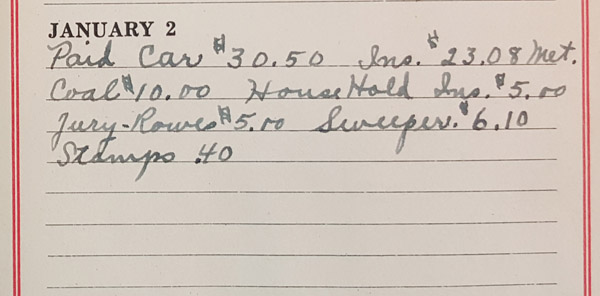 JANUARY 2
Paid Car $30.50 Ins. $23.08 Met.
Coal $10.00 HouseHold Ins. $5.00
Jury-Rowes $5.00 Sweeper. $6.10
Stamps .40